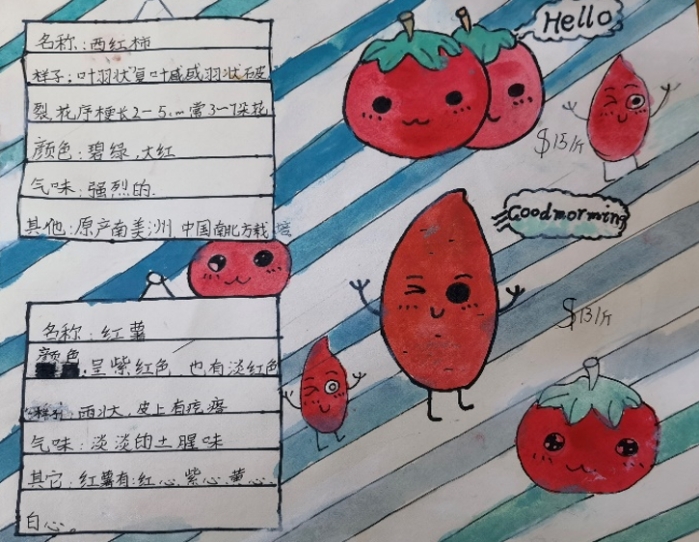 名称:西红柿
样子:叶羽状复叶或羽状
裂,花序梗长2-5cm常3-7朵花
颜色:碧绿,大红
气味:强烈的.
其他:原产南美洲 中国南北方栽培
Hello
$15/斤
Goodmorming
$13/斤
名称:红薯
颜色:呈紫红色 也有淡红色
样子:两状大,皮上有疙瘩
气味:淡淡的土腥味
其它:红薯有:红心.紫心.黄心.
白心。